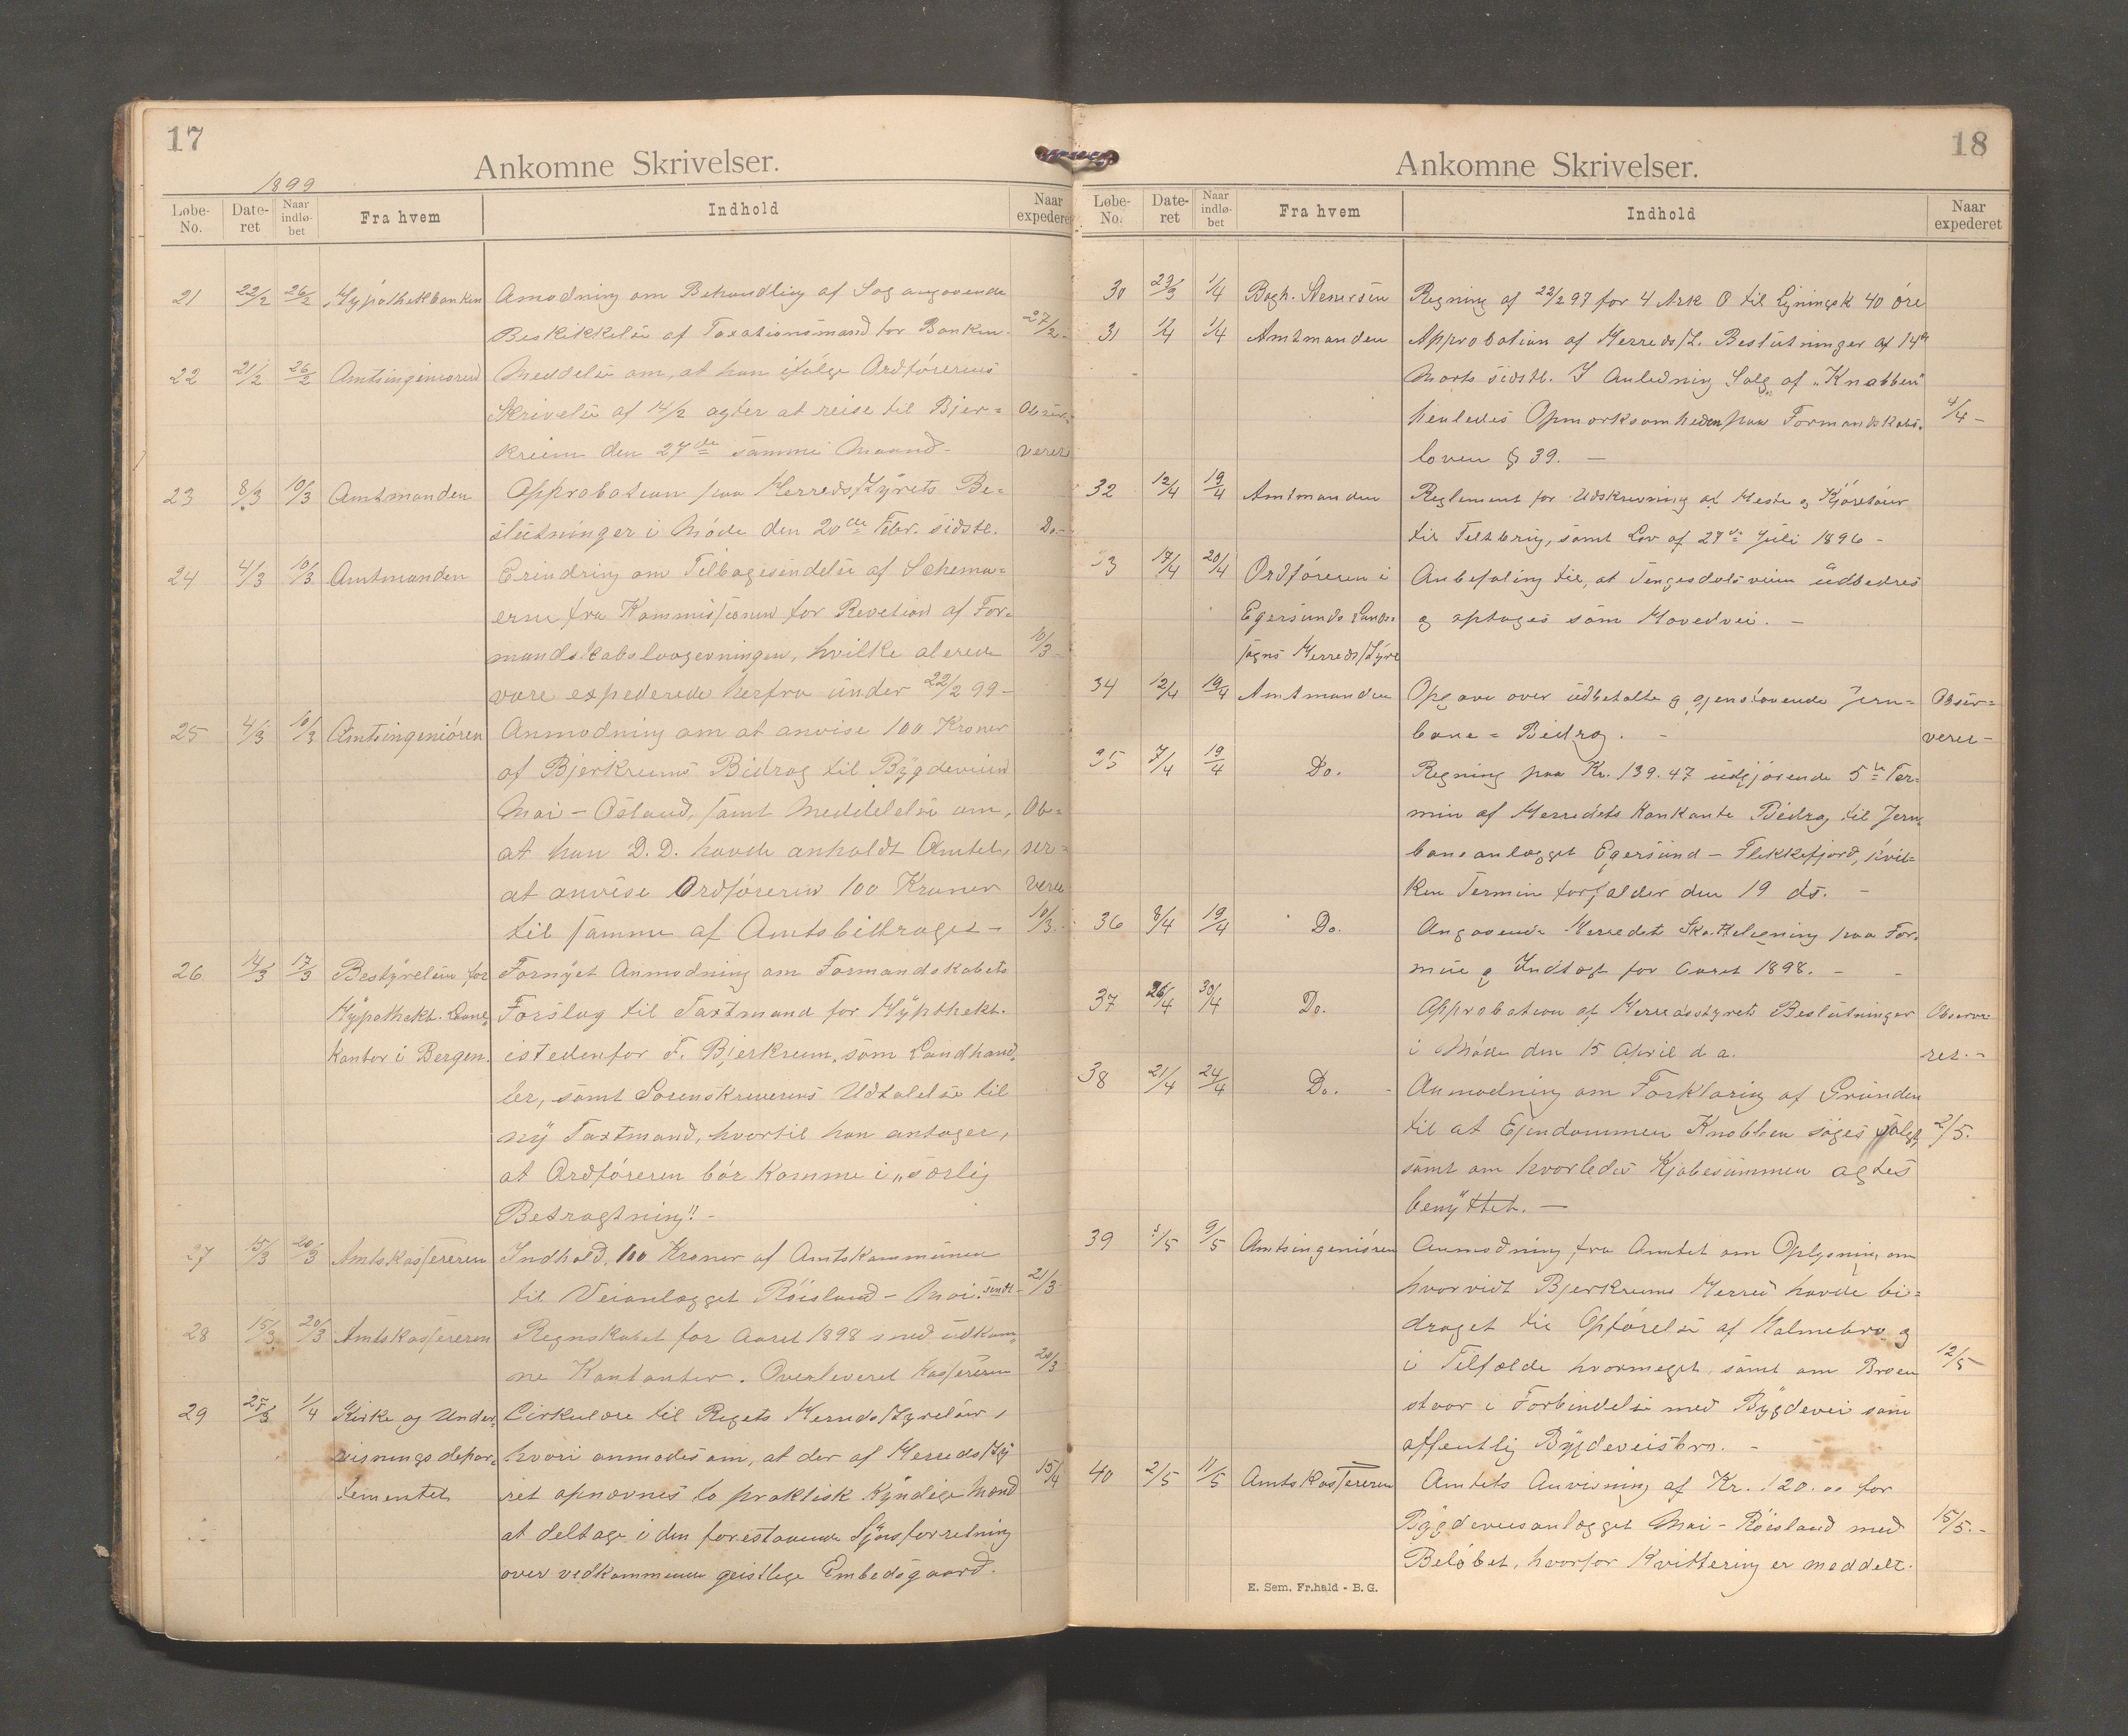 17
Ankomne Skrivelser.
1899
Løbe-No. Date-ret Naar indlø-bet Fra hvem Indhold Naar expederet
21 22/2 26/2 Hypothekbanken Amodning om Behandling af Sag angaaende
Beskikkelse af Taxationsmand for Banken. 27/2-
22 21/2 26/2 Amtsingeniøren Meddelse om, at han ifølge Ordførerens
Skrivelse af 14/2 agter at reise til Bjer= Obser-
kreim den 27de samme Maaned- veret
23 8/3 10/3 Amtmanden Approbation paa Herredsstyrets Be=
slutninger i Møde den 20de Febr. sidstl. Do-
24 4/3 10/3 Amtmanden Erindring om Tilbagesendelse af Schema=
erne fra Kommissionen for Revetion af For=
mandskabslovgevningen, hvilke alerede 10/3-
vare expederede herfra under 22/2 99-
25 4/3 10/3 Amtsingeniøren Anmodning om at anvise 100 Kroner
af Bjerkreims Bidrag til Bygdeveien
Mai - Østaud, samt Meddelelse om, Ob=
at han D.D. havde anholdt Amtet, ser=
at anvise Ordføreren 100 Kroner veret
til samme af Amtsbidraget - 10/3.
26 14/3 17/3 Bestyrelsen for Fornyet Anmodning om Formandskabets
Hypothekb. Laane= Forslag til Taxtmand for Hypthekb.
kontor i Bergen. istedenfor F. Bjerkreim, som Landhand,
ler, samt Sorenskriverens Udtalelse til
ny Taxtmand, hvortil han antager,
at Ordføreren bør komme i „særlig
Betragtning". -
27 15/3 20/3 Amtskassereren Indhold, 100 Kroner af Amtskommunen
til Veianlægget Røisland - Mai. sendt 21/3
28 15/3 20/3 Amtskassereren Regnskabet for Aaret 1898 med udkom=
ne Kontanter. Overleveret Kassereren 20/3
29 25/3 1/4 Kirke og Under= Cirkulære til Rigets Herredsstyrelser,
visningsdepar= hvori anmodes om, at der af Herredssty
tementet ret opnævnes to praktisk kyndige Mænd 15/4
at deltage i den forestaaende Synsforretning
over vedkommende geistlige Embedsgaard.
18
Ankomne Skrivelser.
Løbe-No. Date-ret Naar indlø-bet Fra hvem Indhold Naar expederet
30 23/3 1/4 Bogh. Stenersen Regning af 22/2 97 for 4 Ark O til Ligningsk 40 øre
31 1/4 1/4 Amtmanden Approbation af Herredsst. Beslutninger af 14de
Marts sidstl. I Anledning Salg af „Knabben"
henledes Opmærksomheden paa Formandskabs- 4/4-
loven § 39. -
32 12/4 19/4 Amtmanden Reglement for Udskrivning af Heste og Kjøretøier
til Feltbrug, samt Lov af 27de Juli 1896 -
33 17/4 20/4 Ordføreren i Anbefaling til, at Tengesdalsveien udbedres
Egersunds Lands= og optages som Hovedvei. -
sogns Herredsstyre
34 12/4 19/4 Amtmanden Opgave over udbetalte og gjenstaaende Jern= Obser=
bane = Bidrag. - veret -
35 7/4 19/4 Do. Regning paa Kr. 139.47 udgjørende 5te Ter=
min af Herredets Kontante Bidrag til Jern=
baneanlægget Egersund - Flekkefjord, hvil=
ken Termin forfalder den 19 ds. -
36 8/4 19/4 Do. Angaaende Herredet Skatteligning paa For=
mue og Indtægt for Aaret 1898. -
37 26/4 30/4 Do. Approbation af Herredsstyrets Beslutninger Observe
i Møde den 15 April d a. ret. -
38 21/4 24/4 Do. Anmodning om Forklaring af Grunden
til at Ejendommen Knabben søges solgt, 2/5.
samt om hvorledes Kjøbesummen agtes
benyttet. -
39 3/5 9/5 Amtsingeniøren Anmodning fra Amtet om Oplysning om
hvorvidt Bjerkreims Herred havde bi=
draget til Opførelse af Malmebro og
i Tilfælde hvormeget, samt om Broen 12/5
staar i Forbindelse med Bygdevei som
offentlig Bygdeveisbro. -
40 2/5 11/5 Amtskassereren Amtets Anvisning af Kr. 120.00 for
Bygdeveisanlægget Mai - Røisland med 15/5. -
Beløbet, hvorfor Kvittering er meddelt.
E. Sem. Fr.hald - B. G.